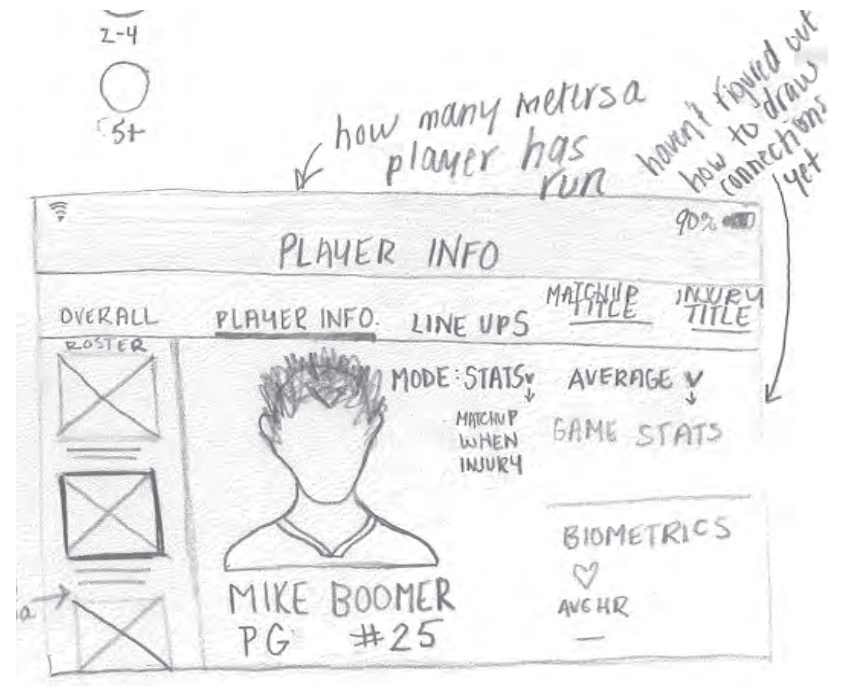 2-4
5+
how many meters a
player has
run
haven't figured out
how to draw
connections
yet
90%
PLAYER INFO
OVERALL
PLAYER INFO.
LINE UPS
MATCHUP
TITLE
INJURY
TITLE
ROSTER
MODE: STATS
AVERAGE
MATCHUP
WHEN
INJURY
GAME STATS
BIOMETRICS
AVG HR
MIKE BOOMER
PG #25